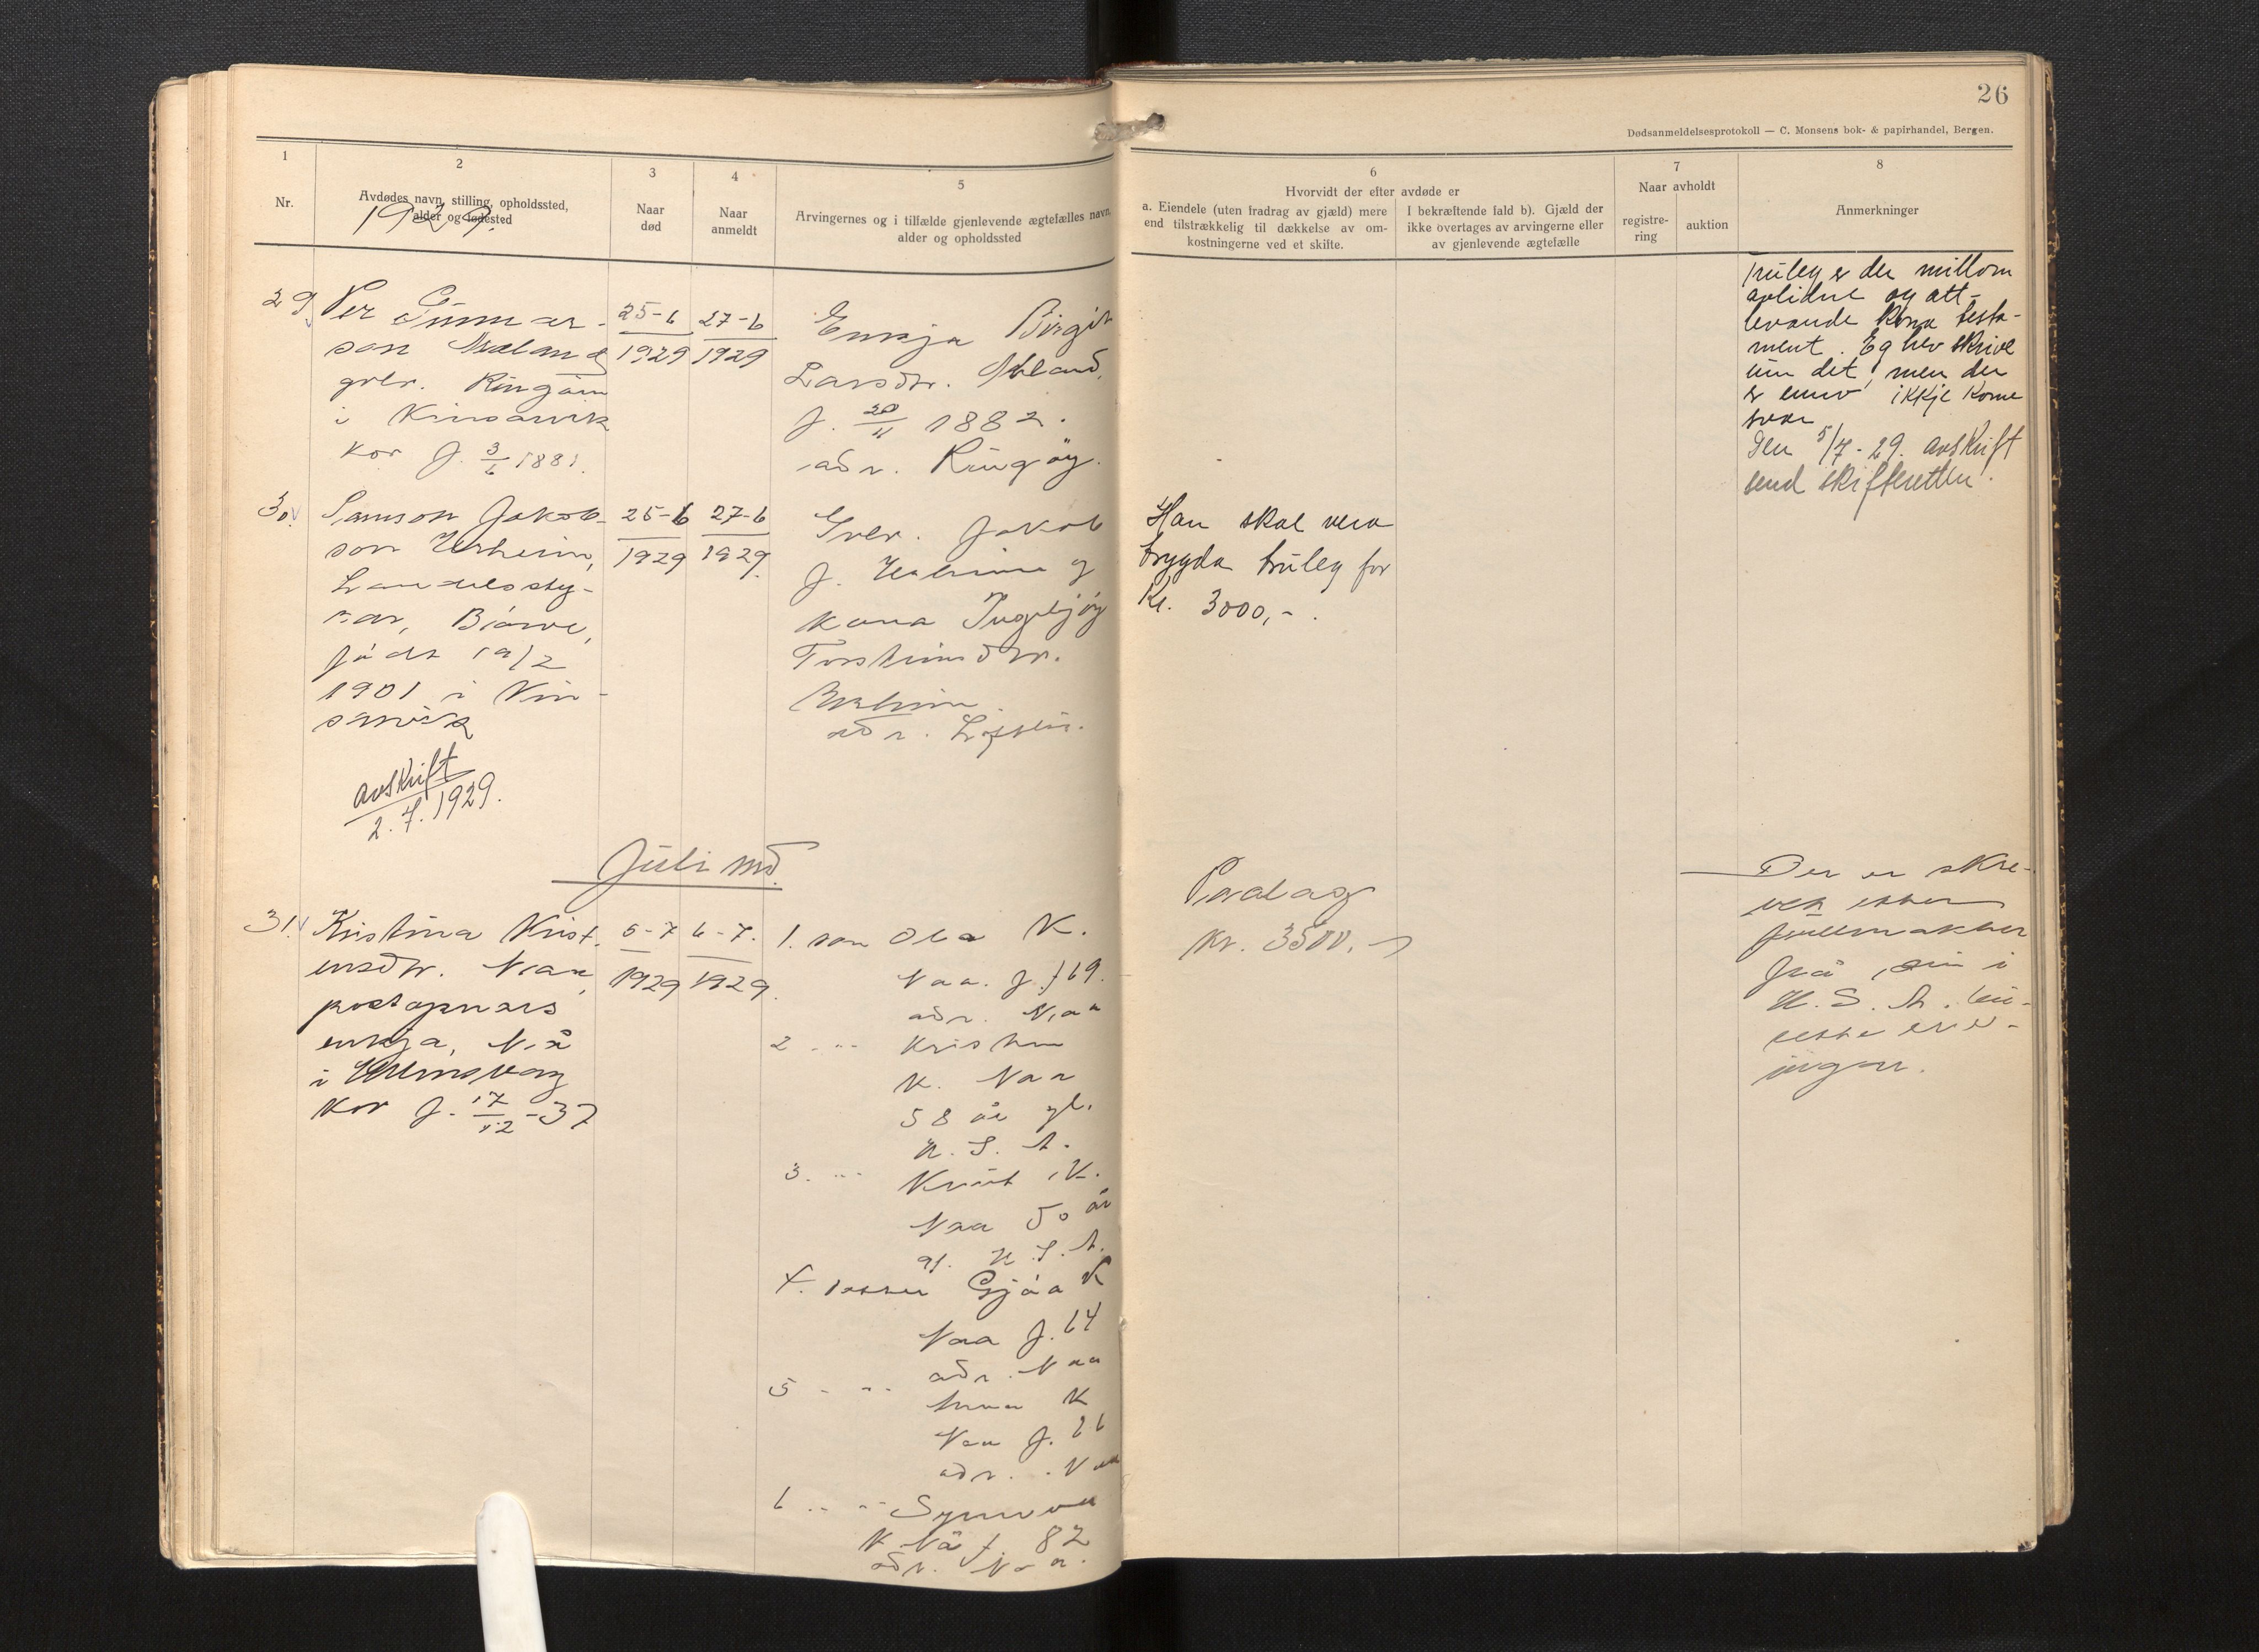 26
Dødsanmeldelsesprotokoll — C. Monsens bok- & papirhandel, Bergen.
1
Nr.
2
Avdødes navn, stilling, opholdssted,
alder og fødested
1929.
3
Naar
død
4
Naar
anmeldt
5
Arvingernes og i tilfælde gjenlevende ægtefælles navn,
alder og opholdssted
6
Hvorvidt der efter avdøde er
a. Eiendele (uten fradrag av gjæld) mere
end tilstrækkelig til dækkelse av om-
kostningerne ved et skifte.
I bekræftende fald b). Gjæld der
ikke overtages av arvingerne eller
av gjenlevende ægtefælle
7
Naar avholdt
registre-
ring
auktion
8
Anmerkninger
29
Per Gunnar-
son Mæland
grbr. Ringøin
i Kinsarvik
kor f. 3/6 1881.
25-6
1929
27-6
1929
Enkja Birgit
Larsdtr.
f. 20/11 1882.
adr. Ringøy.
Truleg er der millom
avlidne og att-
levande kona testa-
ment. Eg hev skrive
um det, men der
er ennu ikkje kome
svar
Den 5/7-29. avskrift
send skifteretten.
30.
Samson Jakob-
son Utheim,
Landels
rar,
født 19/2
1901 i Kin-
sarvik
avskrift
2.7.1929.
25-6
1929
27-6
1929.
Grbr. Jakob
J. Utheim og
kona Ingebjørg
Torsteinsdtr.
Utheim
adr. Lofthus.
Han skal vera
trygda truleg for
Kr. 3000,-.
Juli md.
31.
Kristina Krist-
ensdtr. Naa,
postopnars
enkja, Nå
i Ullensvang
kor f. 17/12-37
5-7
1929
6-7.
1929.
1. son Ola K.
Naa. f. 69.
adr. Naa
2 - " - Kristen
K. Naa
58 år gl.
U.S.A.
3. - " - Knut K.
Naa 50 år
gl. U.S.A.
4. dotter Gjøa K
Naa f. 64
adr. Naa
5 - " - Anna K
Naa f. 66
adr. Naa
6 - " - Synnøva
K. Nå f. 82
adr. Naa.
kr. 3500.-
Der er skre-
ve etter
fullmakter
frå dei i
U.S.A. bu-
ingar.